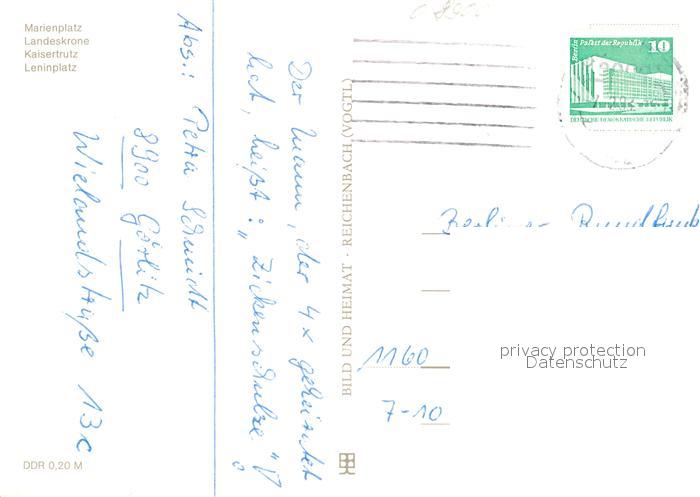 Marienplatz
Landeskrone
Kaisertrutz
Leninplatz
Abs.: Petra Schmidt
8900 Görlitz
Wielandstraße 13c
Der Mann, der 4x geheiratet
hat, heißt: „Zickenschulze"!
BILD UND HEIMAT · REICHENBACH (VOGTL)
Berlin Palast der Republik 10
DEUTSCHE DEMOKRATISCHE REPUBLIK
Berliner Rundfunk
1160
7-10
privacy protection
Datenschutz
DDR 0,20 M